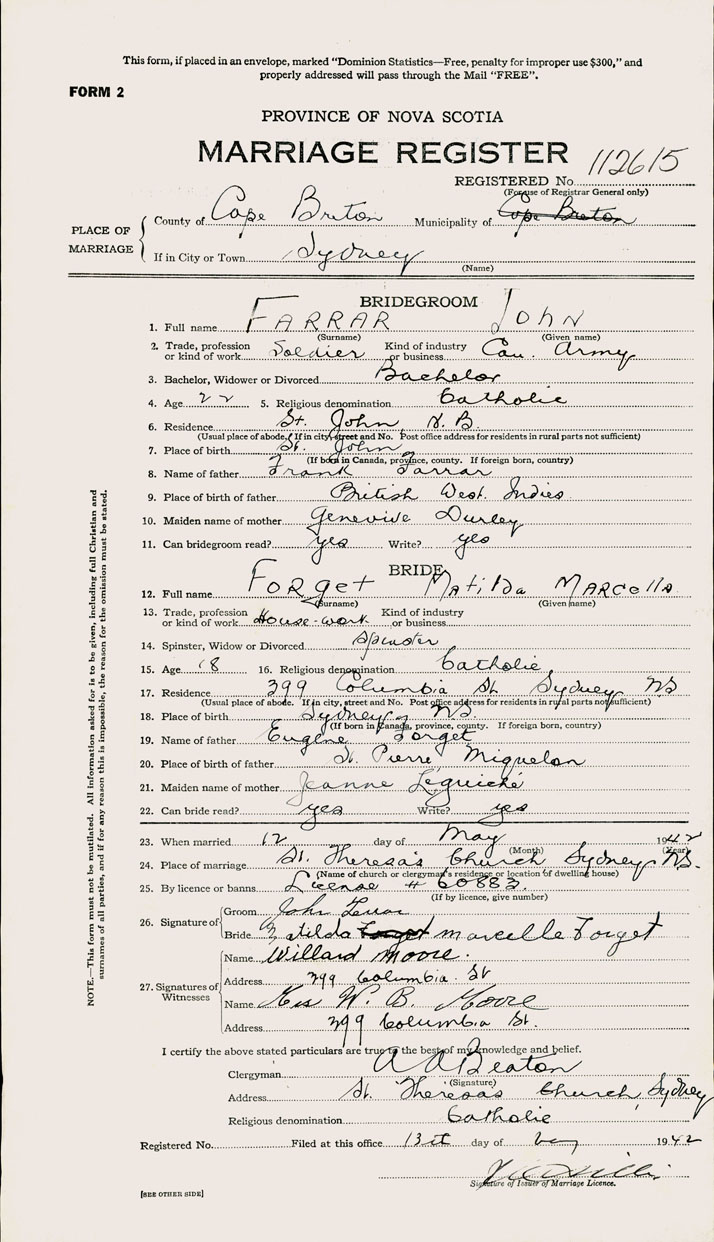 This form, if placed in an envelope, marked "Dominion Statistics—Free, penalty for improper use $300," and
properly addressed will pass through the Mail "FREE".
FORM 2
PROVINCE OF NOVA SCOTIA
MARRIAGE REGISTER
112615
REGISTERED No.
(For use of Registrar General only)
PLACE OF MARRIAGE
County of Cape Breton Municipality of Cape Breton
If in City or Town Sydney
(Name)
BRIDEGROOM
1. Full name FARRAR JOHN
(Surname) (Given name)
2. Trade, profession or kind of work Soldier Kind of industry or business Can. Army
3. Bachelor, Widower or Divorced Bachelor
4. Age 22 5. Religious denomination Catholic
6. Residence St. John N.B.
(Usual place of abode. If in city, street and No. Post office address for residents in rural parts not sufficient)
7. Place of birth St. John
(If born in Canada, province, county. If foreign born, country)
8. Name of father Frank Farrar
9. Place of birth of father British West Indies
10. Maiden name of mother Genevive Durley
11. Can bridegroom read? yes Write? yes
BRIDE
12. Full name Forget Matilda MARCella
(Surname) (Given name)
13. Trade, profession or kind of work House-work Kind of industry or business
14. Spinster, Widow or Divorced Spinster
15. Age 18 16. Religious denomination Catholic
17. Residence 399 Columbia St Sydney NS
(Usual place of abode. If in city, street and No. Post office address for residents in rural parts not sufficient)
18. Place of birth Sydney, NS.
(If born in Canada, province, county. If foreign born, country)
19. Name of father Eugene Forget
20. Place of birth of father St. Pierre Miquelon
21. Maiden name of mother Jeanne
22. Can bride read? yes Write? yes
23. When married 12 day of May 1942
(Month) (Year)
24. Place of marriage St. Theresa's Church Sydney NS.
(Name of church or clergyman's residence or location of dwelling house)
25. By licence or banns License # 60883.
(If by licence, give number)
26. Signature of
Groom John
Bride Matilda Forget marcelle Forget
27. Signatures of Witnesses
Name Willard Moore.
Address 399 Columbia St
Name Mrs W. B. Moore
Address 399 Columbia St.
I certify the above stated particulars are true to the best of my knowledge and belief.
Clergyman A A Beaton
(Signature)
Address St. Theresas Church, Sydney
Religious denomination Catholic
Registered No. Filed at this office 13th day of May 1942
Signature of Issuer of Marriage Licence.
[SEE OTHER SIDE]
NOTE.—This form must not be mutilated. All information asked for is to be given, including full Christian and
surnames of all parties, and if for any reason this is impossible, the reason for the omission must be stated.